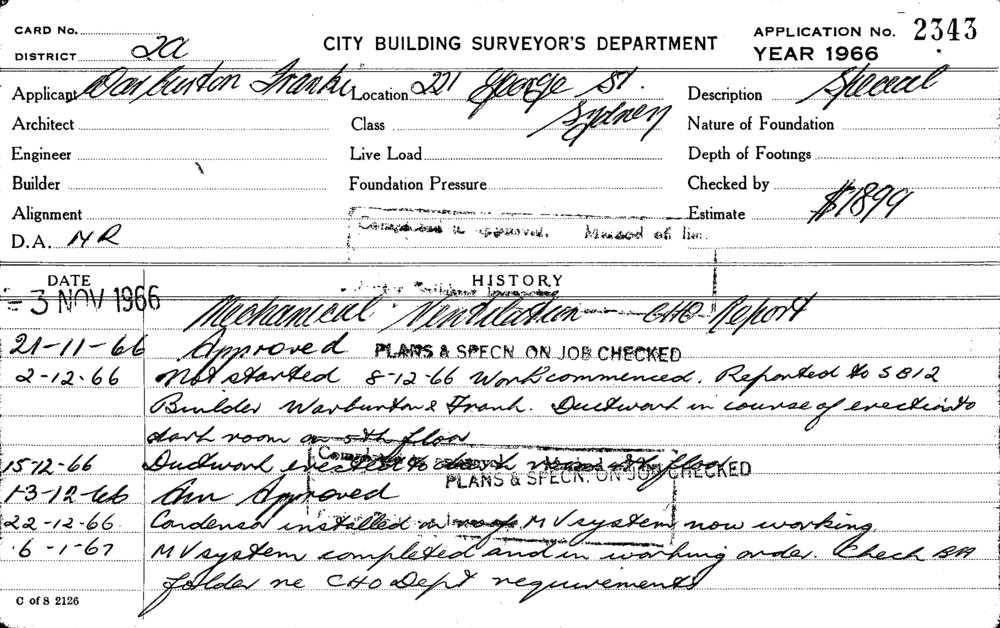 CARD No.
DISTRICT 2A
CITY BUILDING SURVEYOR'S DEPARTMENT
APPLICATION No. 2343
YEAR 1966
Applicant Warburton Franki
Location 221 George St.
Sydney
Description Special
Architect
Class
Nature of Foundation
Engineer
Live Load
Depth of Footings
Builder
Foundation Pressure
Checked by
Alignment
Estimate $1899
D.A. NR
approval. Method of
DATE
HISTORY
- 3 NOV 1966 Mechanical Ventilation CHO Report
21-11-66 Approved PLANS & SPECN. ON JOB CHECKED
2-12-66 Not started 8-12-66 Work commenced. Reported to S 812
Builder Warburton & Frank. Ductwork in course of erection to
dark room on 5th floor
15-12-66 Ductwork erected to dark
PLANS & SPECN. ON JOB CHECKED
13-12-66 Am Approved
22-12-66. Condensor installed on roof MV system now working
6-1-67 MV system completed and in working order. Check BA
folder re CHO Dept requirements
C of S 2126